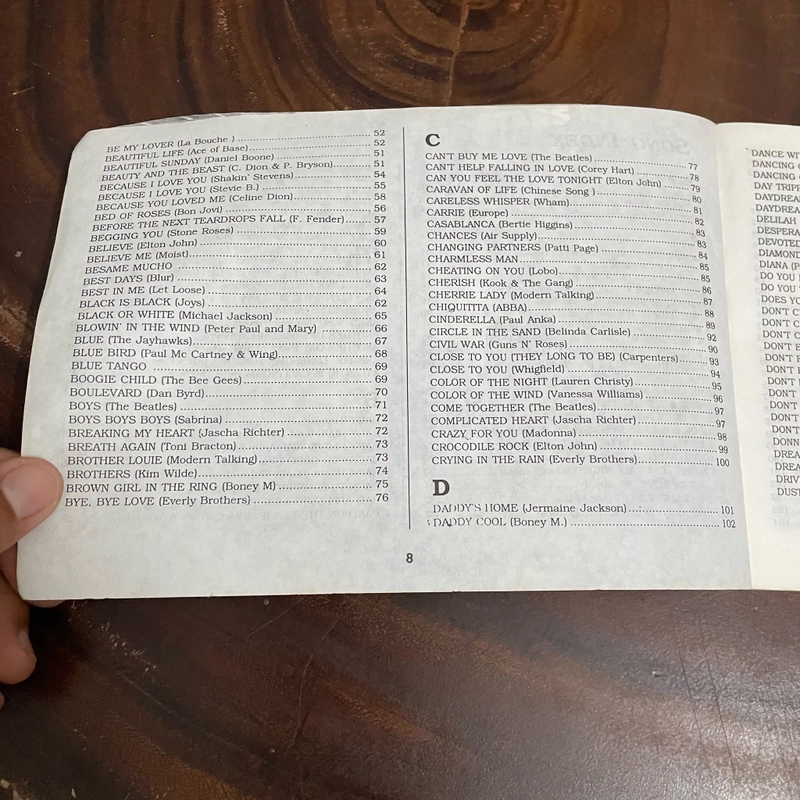 BE MY LOVER (La Bouche ) ........ 52
BEAUTIFUL LIFE (Ace of Base) ........ 52
BEAUTIFUL SUNDAY (Daniel Boone) ........ 51
BEAUTY AND THE BEAST (C. Dion & P. Bryson) ........ 51
BECAUSE I LOVE YOU (Shakin' Stevens) ........ 54
BECAUSE I LOVE YOU (Stevie B.) ........ 55
BECAUSE YOU LOVED ME (Celine Dion) ........ 58
BED OF ROSES (Bon Jovi) ........ 56
BEFORE THE NEXT TEARDROPS FALL (F. Fender) ........ 57
BEGGING YOU (Stone Roses) ........ 59
BELIEVE (Elton John) ........ 60
BELIEVE ME (Moist) ........ 61
BESAME MUCHO ........ 62
BEST DAYS (Blur) ........ 63
BEST IN ME (Let Loose) ........ 64
BLACK IS BLACK (Joys) ........ 62
BLACK OR WHITE (Michael Jackson) ........ 65
BLOWIN' IN THE WIND (Peter Paul and Mary) ........ 66
BLUE (The Jayhawks) ........ 67
BLUE BIRD (Paul Mc Cartney & Wing) ........ 68
BLUE TANGO ........ 69
BOOGIE CHILD (The Bee Gees) ........ 69
BOULEVARD (Dan Byrd) ........ 70
BOYS (The Beatles) ........ 71
BOYS BOYS BOYS (Sabrina) ........ 72
BREAKING MY HEART (Jascha Richter) ........ 72
BREATH AGAIN (Toni Bracton) ........ 73
BROTHER LOUIE (Modern Talking) ........ 73
BROTHERS (Kim Wilde) ........ 74
BROWN GIRL IN THE RING (Boney M) ........ 75
BYE, BYE LOVE (Everly Brothers) ........ 76
C
CAN'T BUY ME LOVE (The Beatles) ........ 77
CAN'T HELP FALLING IN LOVE (Corey Hart) ........ 78
CAN YOU FEEL THE LOVE TONIGHT (Elton John) ........ 79
CARAVAN OF LIFE (Chinese Song ) ........ 80
CARELESS WHISPER (Wham) ........ 81
CARRIE (Europe) ........ 82
CASABLANCA (Bertie Higgins) ........ 83
CHANCES (Air Supply) ........ 83
CHANGING PARTNERS (Patti Page) ........ 84
CHARMLESS MAN ........ 85
CHEATING ON YOU (Lobo) ........ 85
CHERISH (Kook & The Gang) ........ 86
CHERRIE LADY (Modern Talking) ........ 87
CHIQUITITA (ABBA) ........ 88
CINDERELLA (Paul Anka) ........ 89
CIRCLE IN THE SAND (Belinda Carlisle) ........ 92
CIVIL WAR (Guns N' Roses) ........ 90
CLOSE TO YOU (THEY LONG TO BE) (Carpenters) ........ 93
CLOSE TO YOU (Whigfield) ........ 94
COLOR OF THE NIGHT (Lauren Christy) ........ 95
COLOR OF THE WIND (Vanessa Williams) ........ 96
COME TOGETHER (The Beatles) ........ 97
COMPLICATED HEART (Jascha Richter) ........ 97
CRAZY FOR YOU (Madonna) ........ 98
CROCODILE ROCK (Elton John) ........ 99
CRYING IN THE RAIN (Everly Brothers) ........ 100
D
DADDY'S HOME (Jermaine Jackson) ........ 101
DADDY COOL (Boney M.) ........ 102
8
DANCE
DANCING
DANCING
DAY
DELILAH
DO YOU
DO YOU
DON'T
DON'T
DON'T
DON'T
DON'T
DON'T
DON'T
DON'T
DON'T